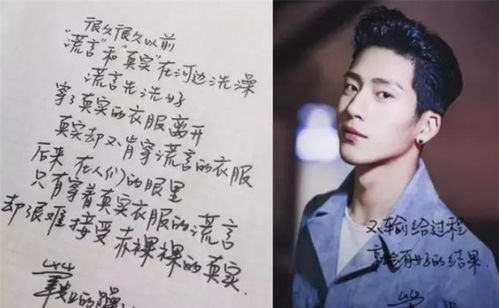 很久很久以前
“谎言”和“真实”在河边洗澡
谎言先洗好
穿了真实的衣服离开
真实却不肯穿谎言的衣服
后来 在人们的眼里
只有穿着真实衣服的谎言
却很难接受赤裸裸的真实.
不输给过程
就会有好的结果.